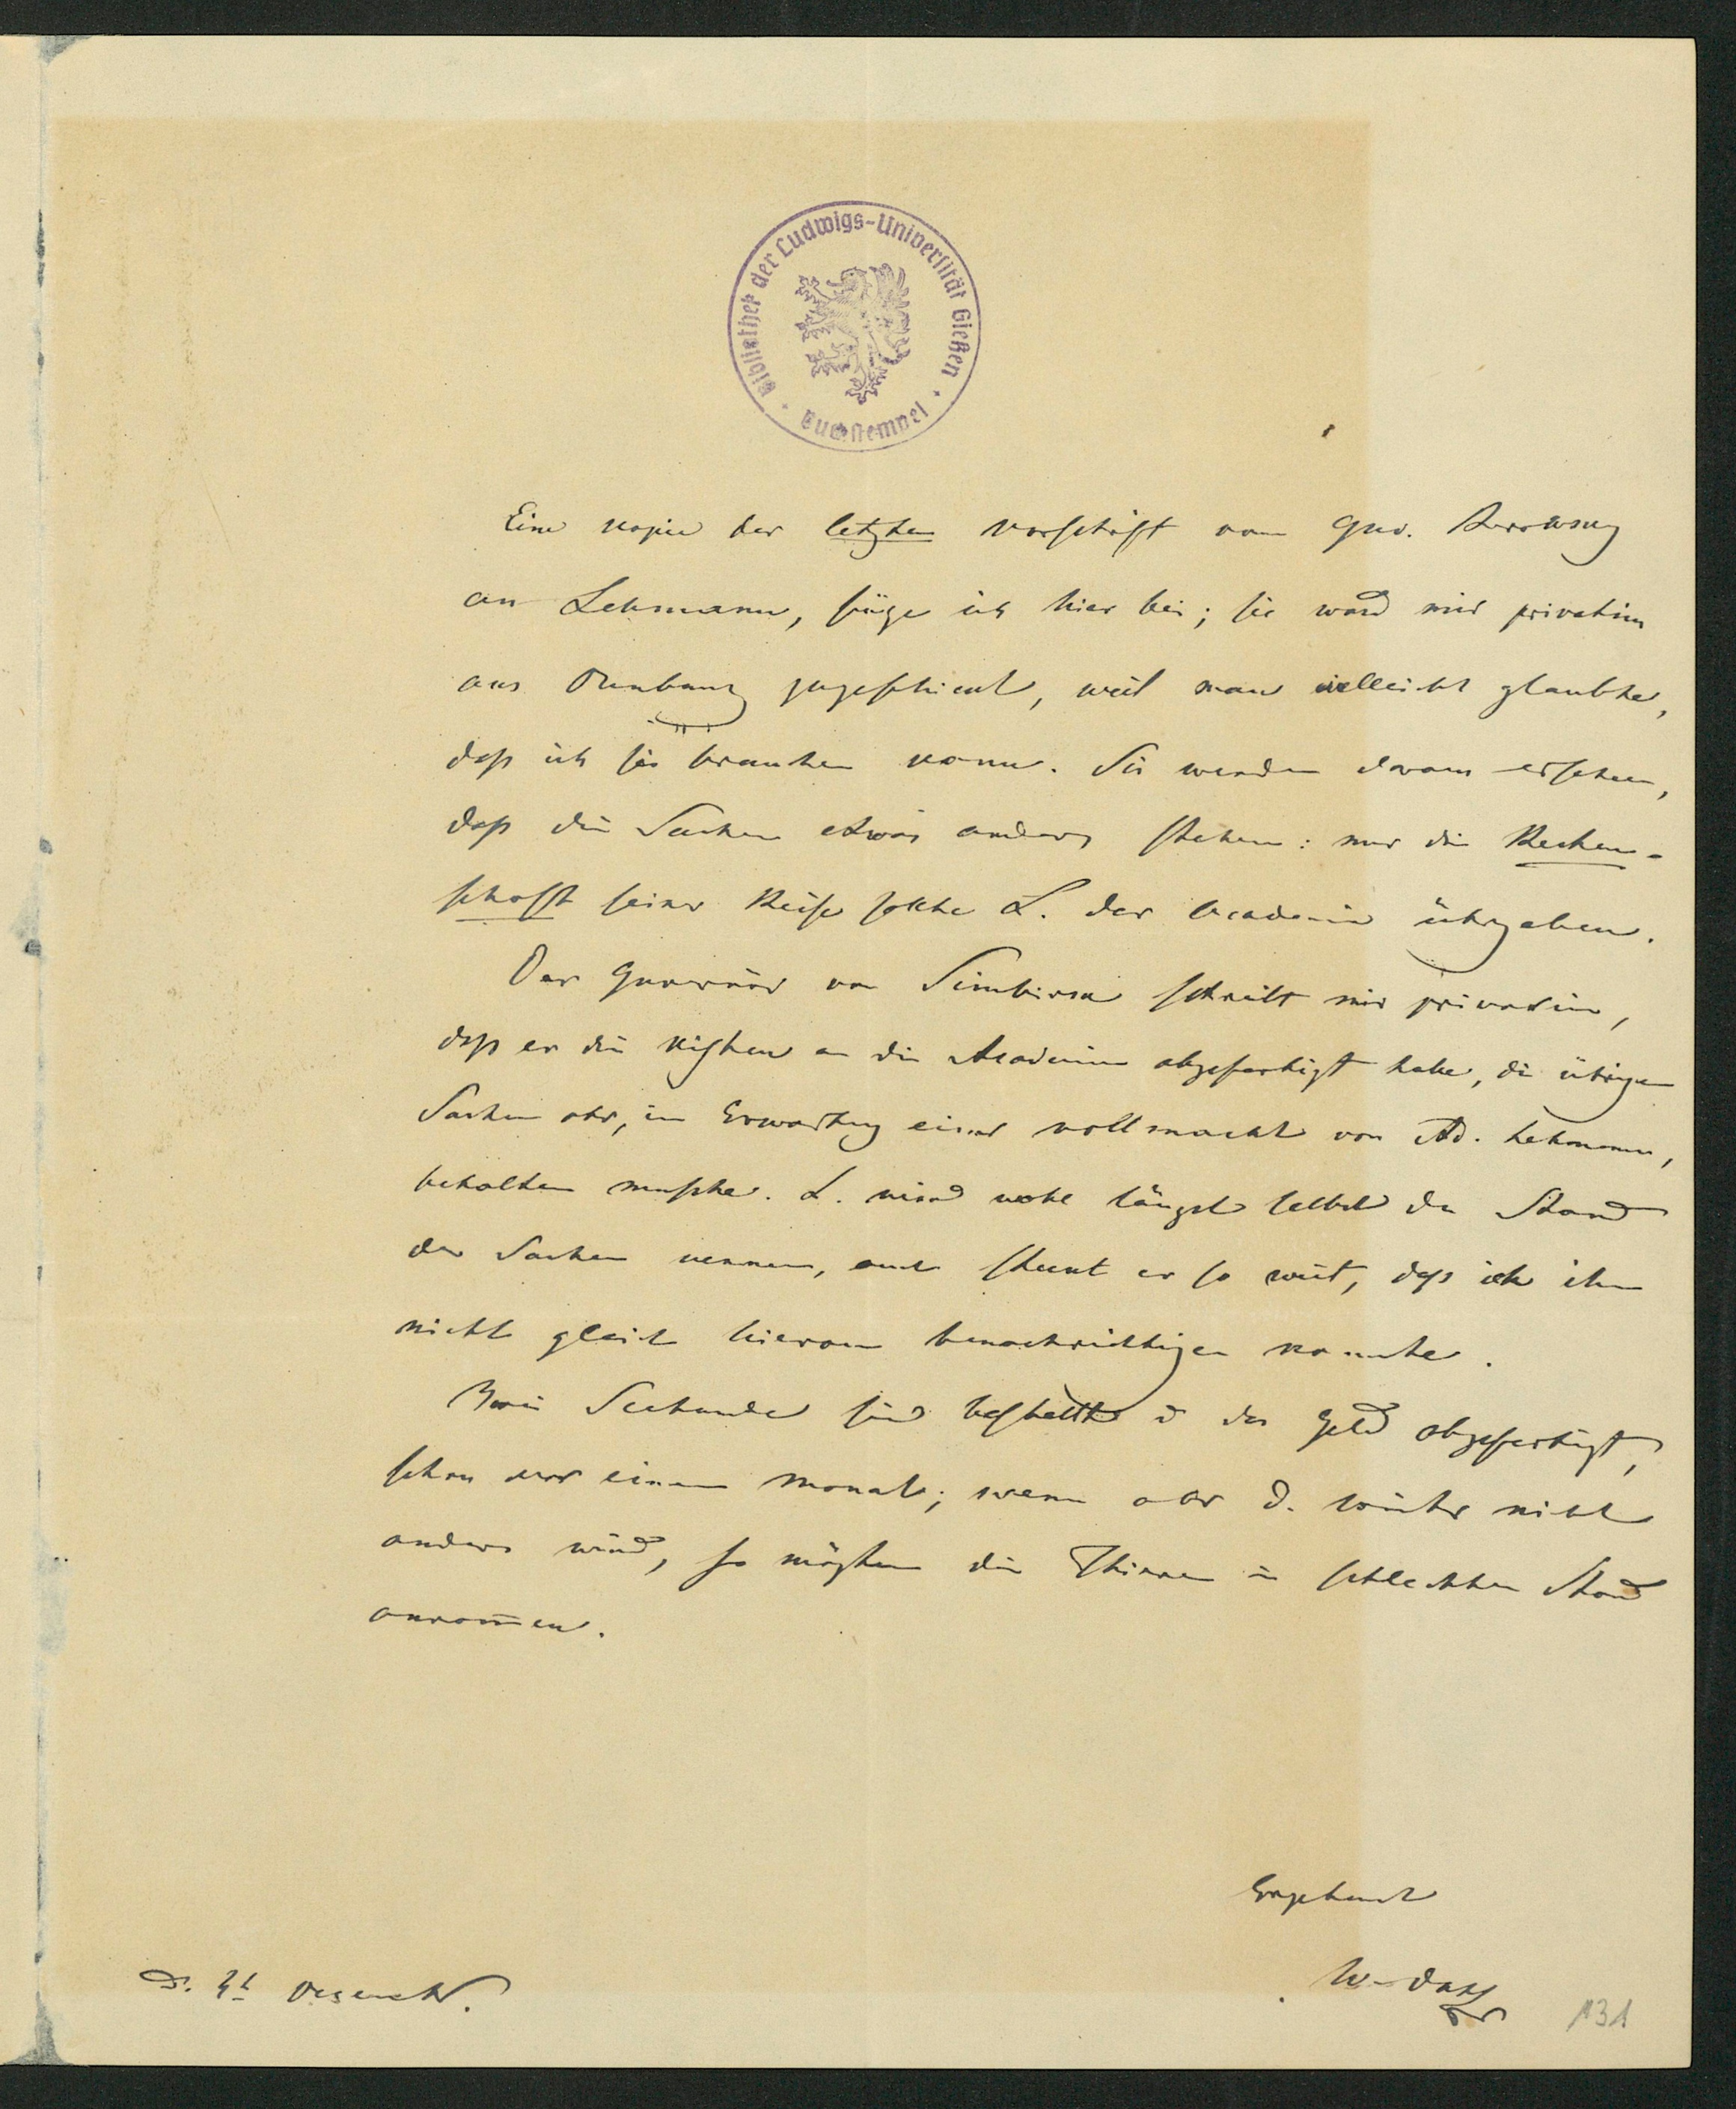 Bibliothek der Ludwigs-Universität Gießen
Buchstempel
Eine Kopie der letzten Vorschrift vom Gen. Perowsky
an Lehmann, füge ich hier bei; sie ward mir privatim
aus Orenburg zugeschickt, weil man vielleicht glaubte,
daß ich sie brauchen kann. Sie werden daraus ersehen,
daß die Sachen etwas anders stehen: nur die Rechen-
schaft seiner Reise sollte L. der Academie übergeben.
Der Guvernör von Simbirsk schreibt mir privatim,
daß er die Kisten an die Academie abgefertigt habe, die übrigen
Sachen aber, in Erwartung einer Vollmacht von Ad. Lehmann,
behalten mußte. L. wird wohl längst selbst den Stand
der Sachen kennen, auch steckt er so weit, daß ich ihn
nicht gleich hiervon benachrichtigen konnte.
Zwei Seehunde sind bestellt u das Geld abgefertigt,
schon vor einem Monat; wenn aber d. Winter nicht
anders wird, so möchten die Thiere in schlechtem Stand
ankom̄en.
Ergebenst
W. Dahl
D. 4t Dezember.
131